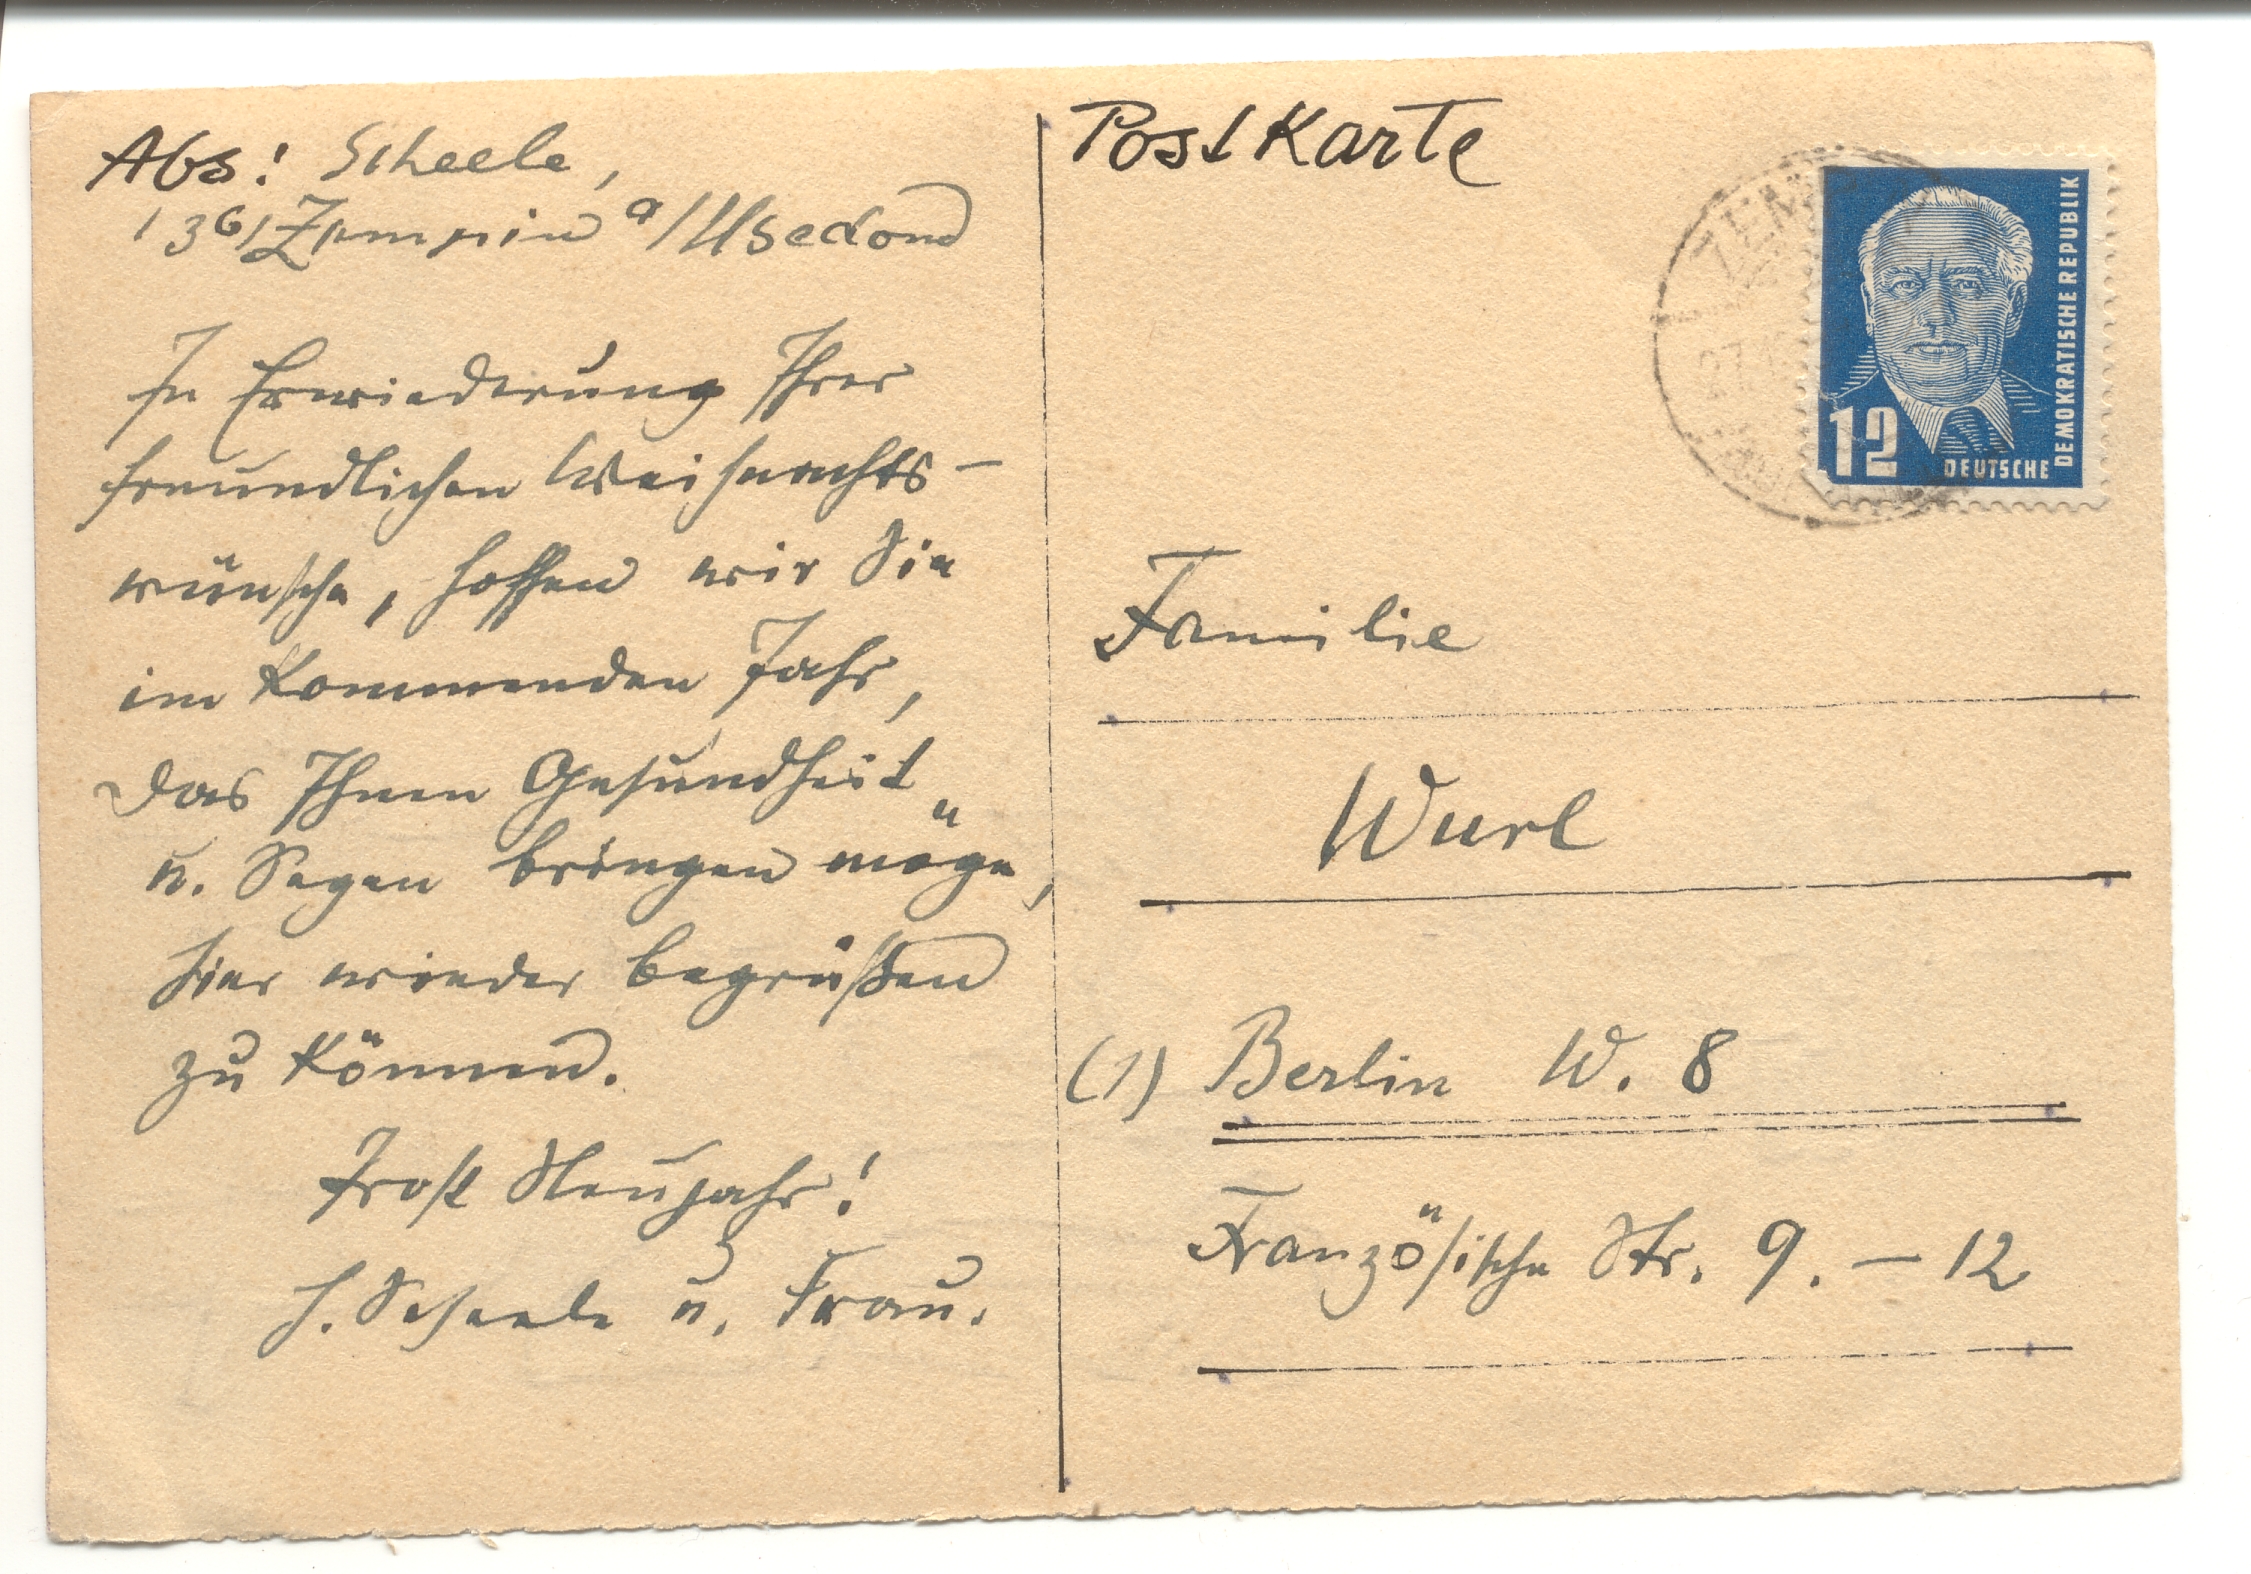 Abs! Scheele,
1361 Zempin a/Usedom
In Erwiederung Ihrer
freundlichen Weihnachts-
wünsche, hoffen wir Sie
im kommenden Jahr,
das Ihnen Gesundheit
u. Segen bringen möge,
hier wieder begrüßen
zu können.
Prost Neujahr!
H. Scheele u. Frau.
Postkarte
ZEM
27.12
12
DEUTSCHE
DEMOKRATISCHE REPUBLIK
Familie
Wurl
(1) Berlin W. 8
Französische Str. 9. – 12